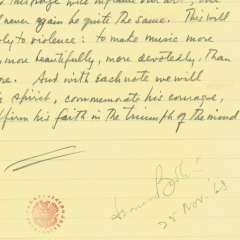 will inflame our art, our
never again be quite the same. This will
ply to violence: to make music more
more beautifully, more devotedly, than
re. And with each note we will
spirit, commemorate his courage,
ffirm his faith in the triumph of the mind
25 Nov. '63